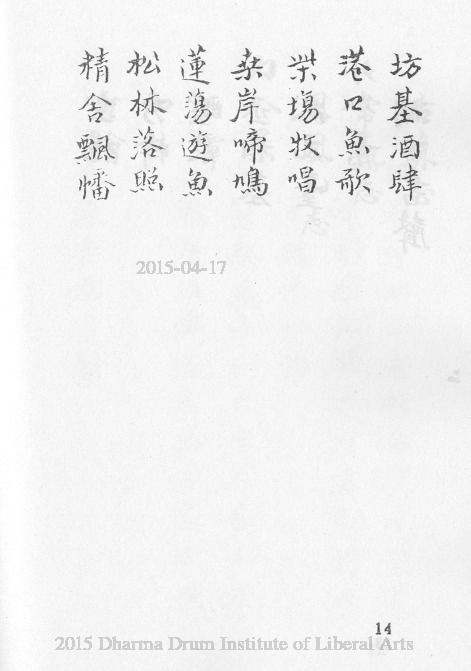 坊基酒肆
港口魚歌
柴塲牧唱
桒岸啼鳩
蓮蕩遊魚
松林落照
精舍飄幡
2015-04-17
14
2015 Dharma Drum Institute of Liberal Arts